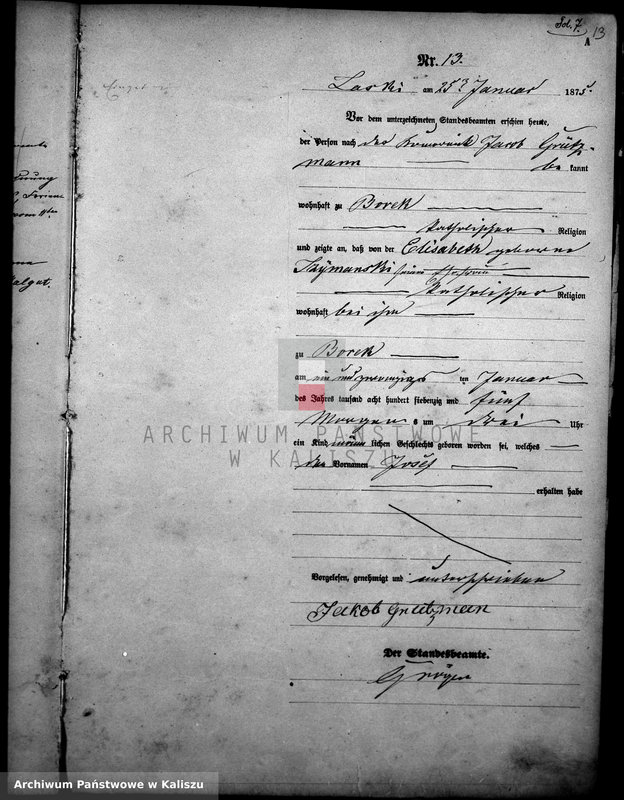 Fol. 7.
13
A
Nr. 13.
Laski am 25ⁿ Januar 1875.
Vor dem unterzeichneten Standesbeamten erschien heute,
der Person nach der Jacob Grütz-
mann be kannt
wohnhaft zu Borek
katholischer Religion
und zeigte an, daß von der Elisabeth geborene
Szymanski seiner Ehefrau
katholischer Religion
wohnhaft bei ihm
zu Borek
am ein und zwanzigsten Januar
des Jahres tausend acht hundert siebenzig und fünf
Morgens um drei Uhr
ein Kind männlichen Geschlechts geboren worden sei, welches
den Vornamen Josef
erhalten habe
Vorgelesen, genehmigt und unterschrieben
Jakob Grutzman
Der Standesbeamte.
ARCHIWUM PAŃSTWOWE
W KALISZU
Archiwum Państwowe w Kaliszu